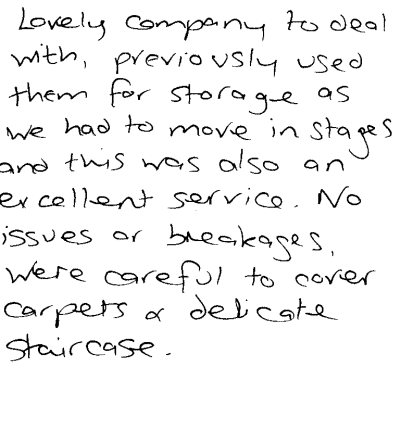 Lovely company to deal
with, previously used
them for storage as
we had to move in stages
and this was also an
excellent service. No
issues or breakages,
were careful to cover
carpets & delicate
staircase.